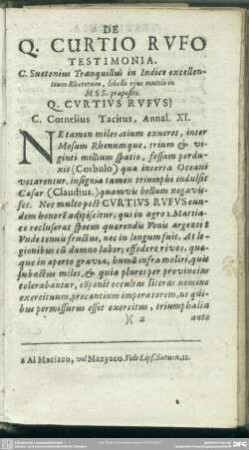 DE
Q. CURTIO RVFO
TESTIMONIA.
C. Suetonius Tranquillus in Indice excellen-
tium Rhetorum, libello ejus mutilo in
MSS. præposito.
Q. CVRTIVS RVFVS]
C. Cornelius Tacitus, Annal. XI.
NE tamen miles otium exueret, inter
Mosam Rhenumque, trium & vi-
ginti millium spatio, fossam perdu-
xit (Corbulo) qua incerta Oceani
vetarentur. insignia tamen triumphi indulsit
Cæsar (Claudius) quamvis bellum negavis-
set. Nec multo post CURTIUS RVFUS eun-
dem honorē adipiscitur, qui in agro s. Mattia-
co recluserat specus quærendis venis argenti:
Vnde tenuis fructus, nec in longum fuit. At le-
gionibus cū damno labor; effodere rivos, quæ-
que in aperto gravia, humū infra moliri, quis
subactus miles, & quia plures per provincias
tolerabantur, cōponit occultas literas nomine
exercituum, precantium imperatorem, ut qui-
bus permissurus esset exercitus, triumphalia
)( 2 ante
s Al Maciaco, vel Mazyaco. Vide Lips. Saturn. 12.